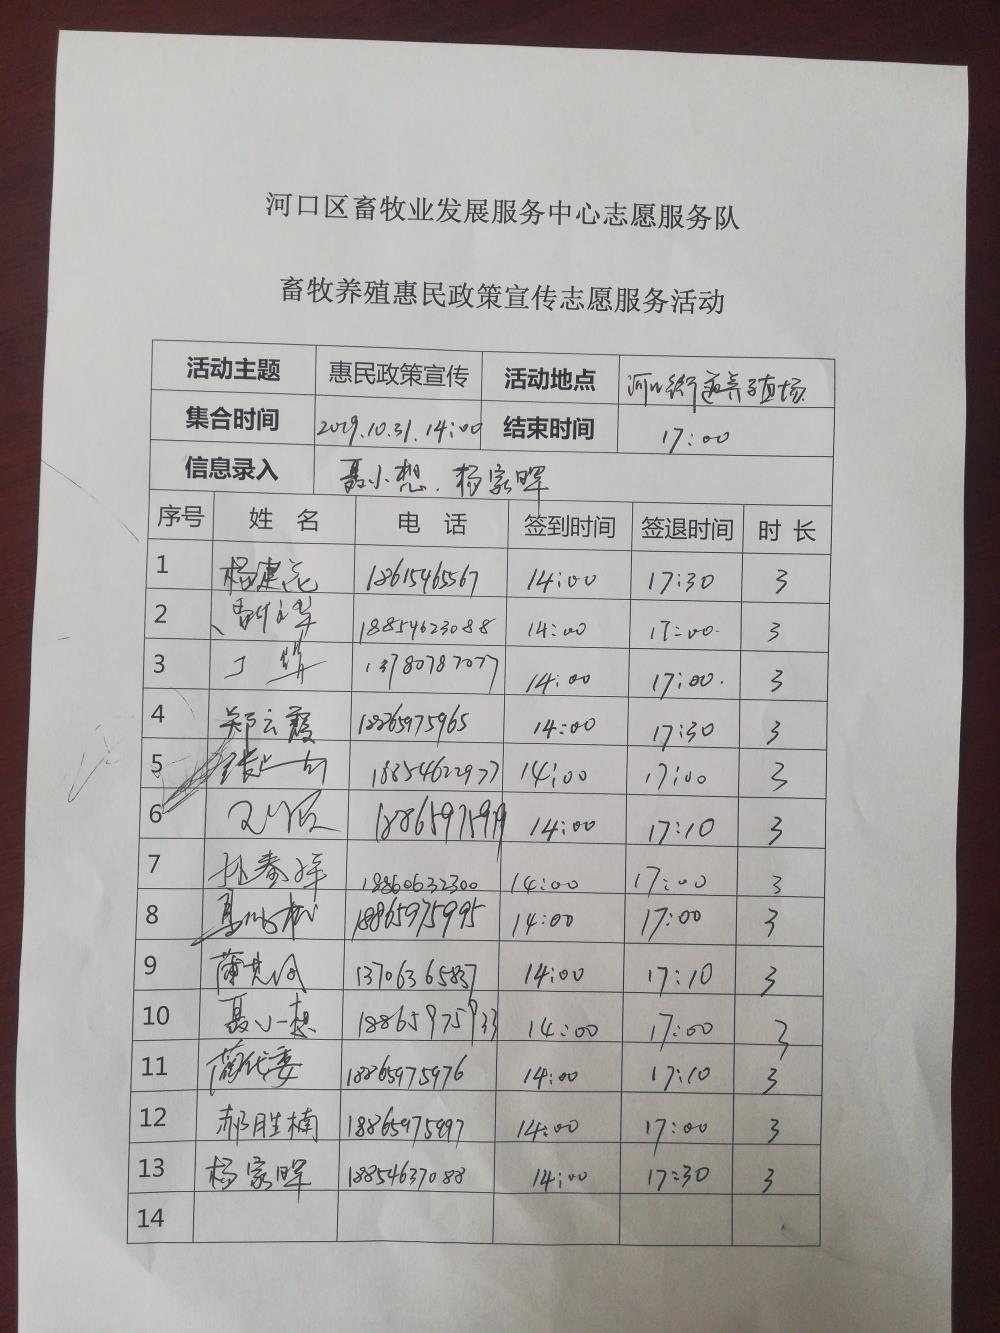 河口区畜牧业发展服务中心志愿服务队
畜牧养殖惠民政策宣传志愿服务活动
活动主题 惠民政策宣传 活动地点 河口街道养殖场
集合时间 2019.10.31.14:00 结束时间 17:00
信息录入 聂小想.杨家晖
序号 姓 名 电 话 签到时间 签退时间 时 长
1 杨建 18615465567 14:00 17:30 3
2 18854623088 14:00 17:00. 3
3 丁 13780787077 14:00 17:00. 3
4 郑云霞 18865975965 14:00 17:30 3
5 18854622977 14:00 17:00 3
6 14:00 17:10 3
7 孙春 18860632300 14:00 17:00 3
8 18865975995 14:00 17:00 3
9 13706365837 14:00 17:10 3
10 聂小想 18865975933 14:00 17:00 3
11 18865975976 14:00 17:10 3
12 郝胜楠 18865975997 14:00 17:00 3
13 杨家晖 18854637088 14:00 17:30 3
14